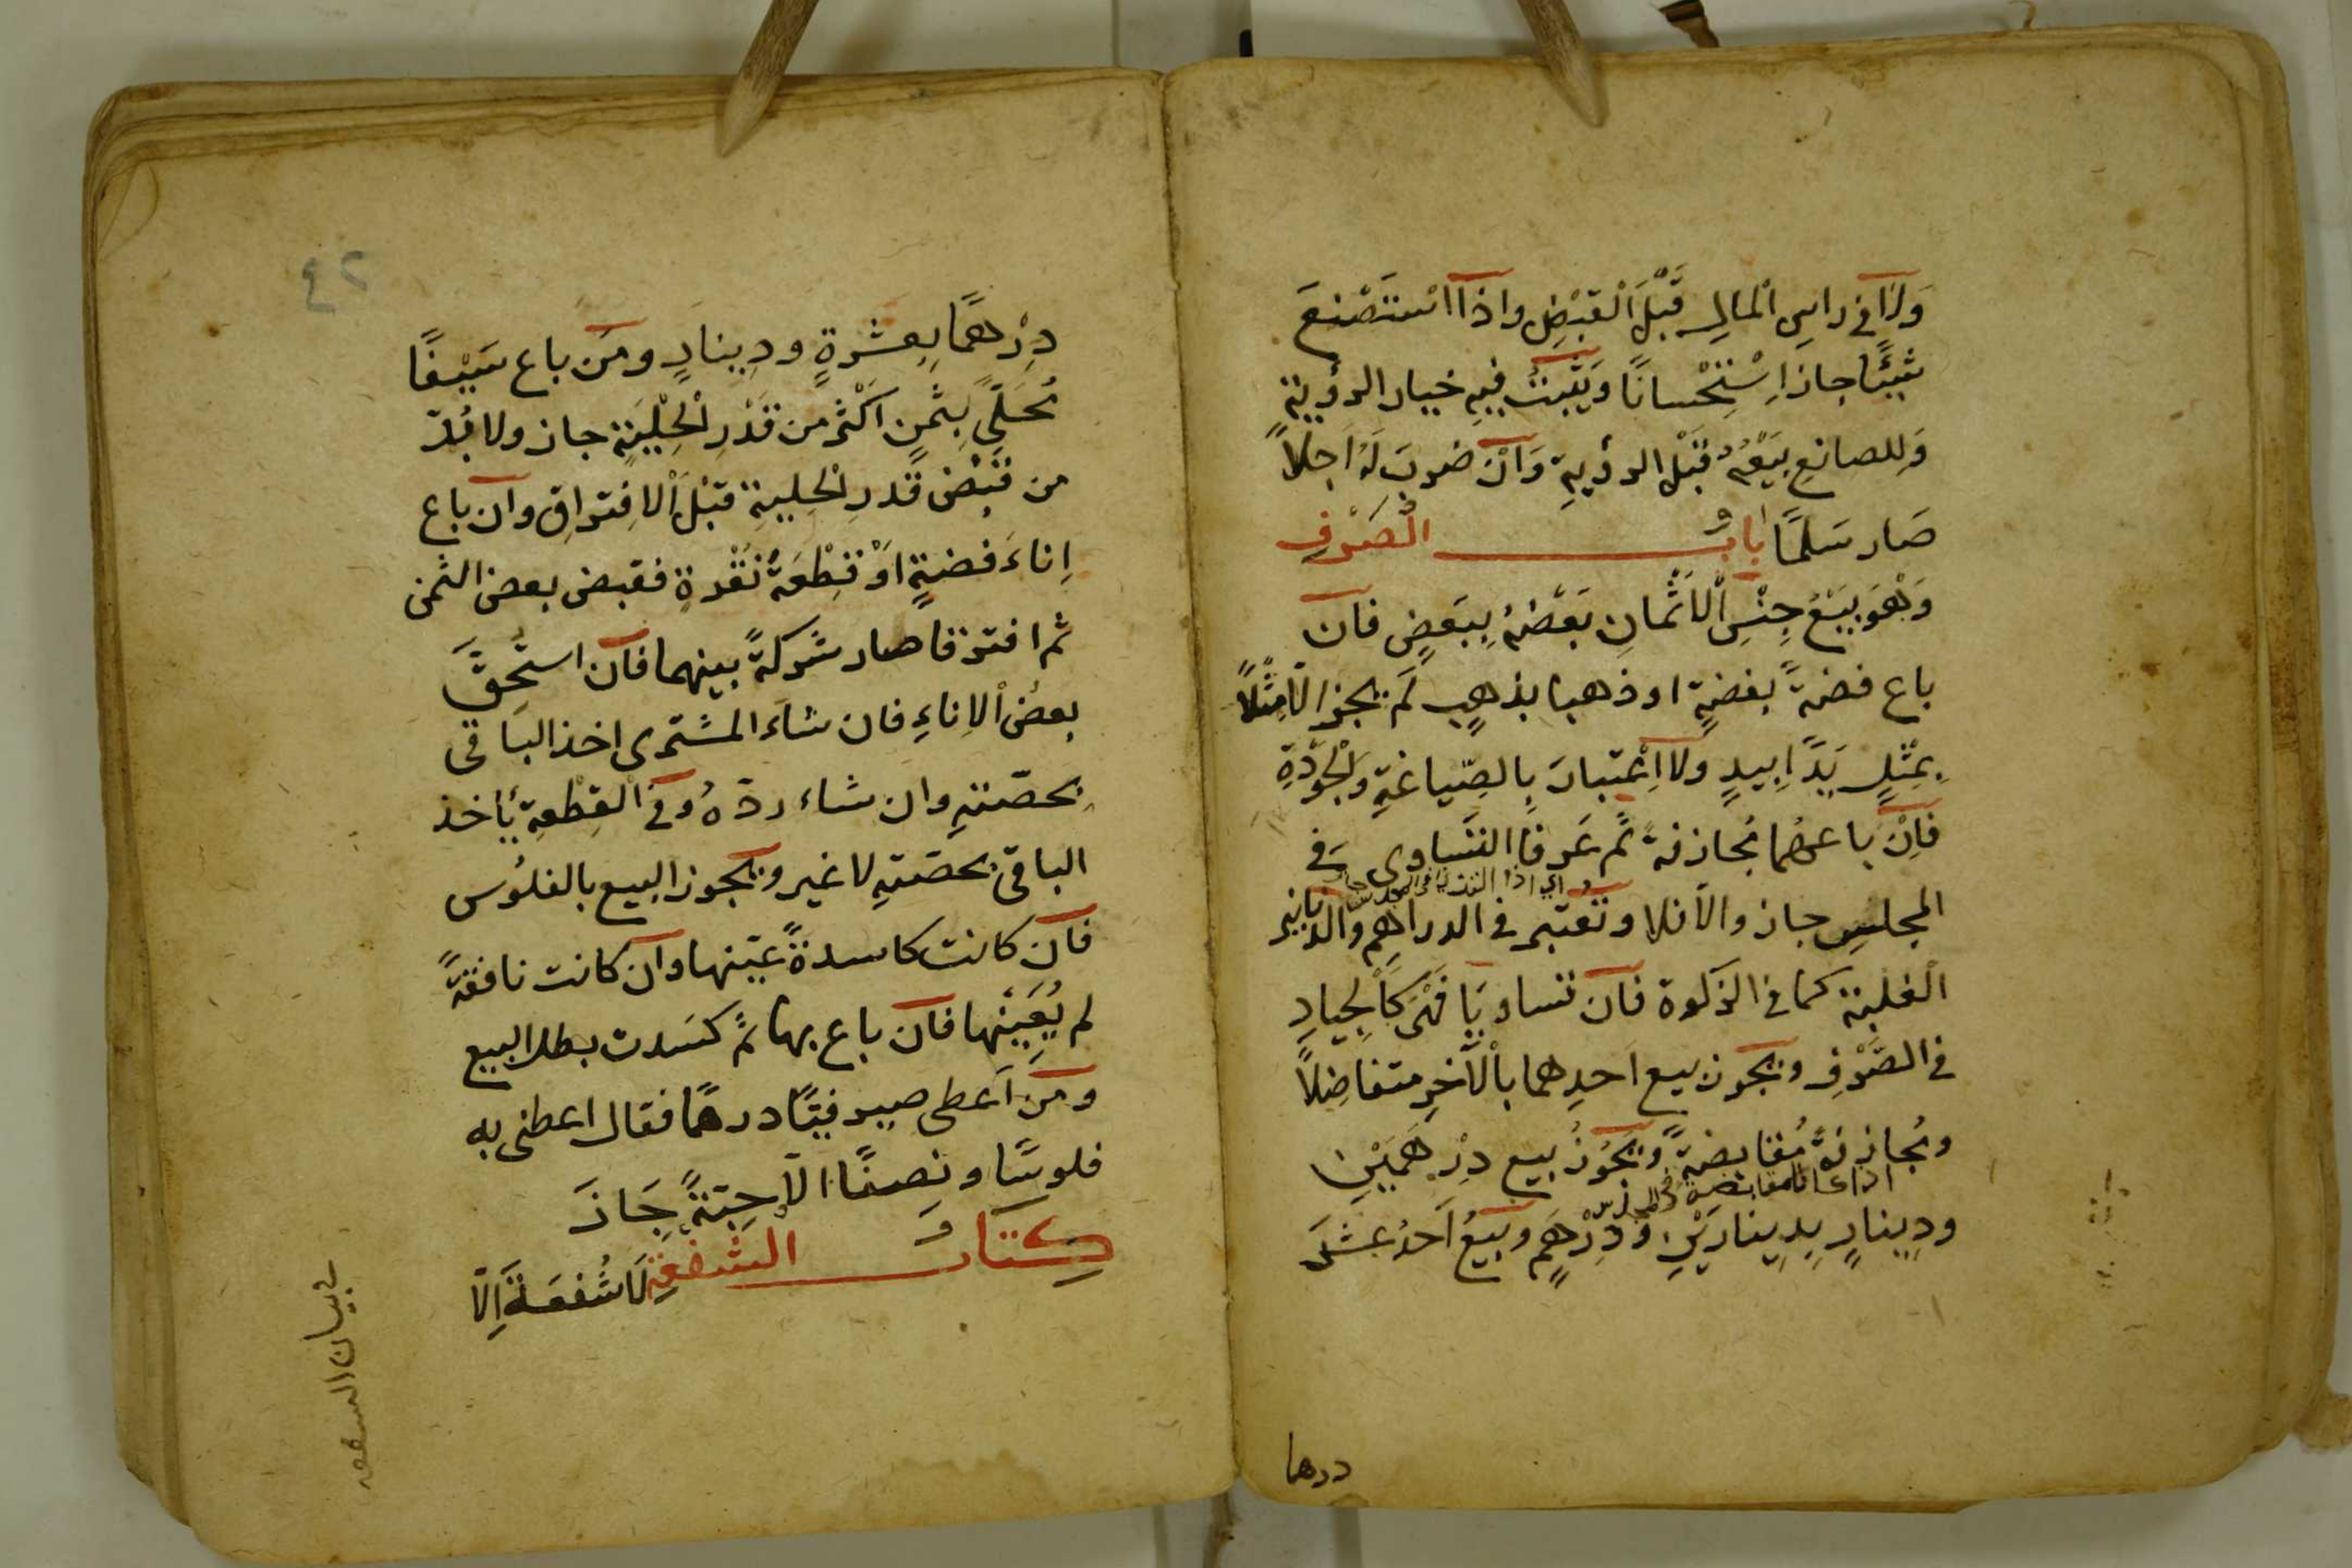 وَلَا فِي رَاسِ الْمَالِ قَبْلَ الْقَبْضِ وَاذَا اسْتَصْنَعَ
شَيْئًا جاز اِسْتِحْسانًا وَيَثْبُتُ فِيهِ خيار الرؤية
وَلِلصانِعِ بَيْعُهُ قَبْل الرؤيةِ وَاِنْ ضربَ لَهُ اَجلاً
صَار سَلَمًا بابُ الصَّرْفِ
وَهُوَ بَيْعُ جِنْسِ الْاَثْمانِ بَعْضُهُ بِبَعْضٍ فان
باع فضةً بفضةٍ او ذهبا بذهبٍ لَمْ يجز الّا مِثْلاً
بِمِثْلٍ يَدًا بِيدٍ ولا اِعْتِبارَ بِالصّياغةِ وَالْجَوْدَةِ
فَاِنْ باعهُما مُجازفةً ثُمَّ عَرفا التَّساوِى فِى
المجلسِ جاز والّا فلا وتُعْتبر فى الدراهِمِ والدنانير
الْغلبة كما فى الزكوة فان تساويَا فَهِىَ كَالْجيادِ
فى الصَّرْفِ ويجوز بيع اَحدِهما بِالْآخرِ متفاضلاً
ومُجازفةً مُقابضةً ويَجُوزُ بيع دِرْهَمَيْنِ
ودِينارٍ بِدِينارَيْنِ ودِرْهَمٍ وبَيْعُ اَحَدَ عشَرَ
درهما
٤٢
دِرْهمًا بِعشرةٍ ودِينارٍ ومَن باع سَيْفًا
مُحَلًّى بِثَمنٍ اَكْثر من قَدْرِ الْحِلْيَةِ جاز ولا بُدّ
من قَبْض قَدرِ الْحِليةِ قبْلَ الْافتراقِ وان باع
اِناءَ فضةٍ اَوْ قِطْعَةَ نُقْرةٍ فقبض بعض الثمن
ثم افترقا صار شركةً بينهما فان استُحِقَّ
بعضُ الْاِناءِ فان شاء المشترى اخذ الباقى
بحصّتهِ وان شاء ردّهُ وفى الْقِطْعةِ يأخذ
الباقى بحصّتهِ لا غير ويجوز البيع بالفلُوس
فان كانت كاسدةً عيّنها وان كانت نافقةً
لم يُعَيِّنْها فان باع بها ثُمَّ كسَدت بطل البيع
ومَن اَعطى صيرفيًّا درهمًا فقال اعطنى به
فلوسًا ونصفًا الّا حبّةً جَازَ
كتابُ الشفعةِ لَا شُفعَةَ اِلّا
فى بيان الشفعه